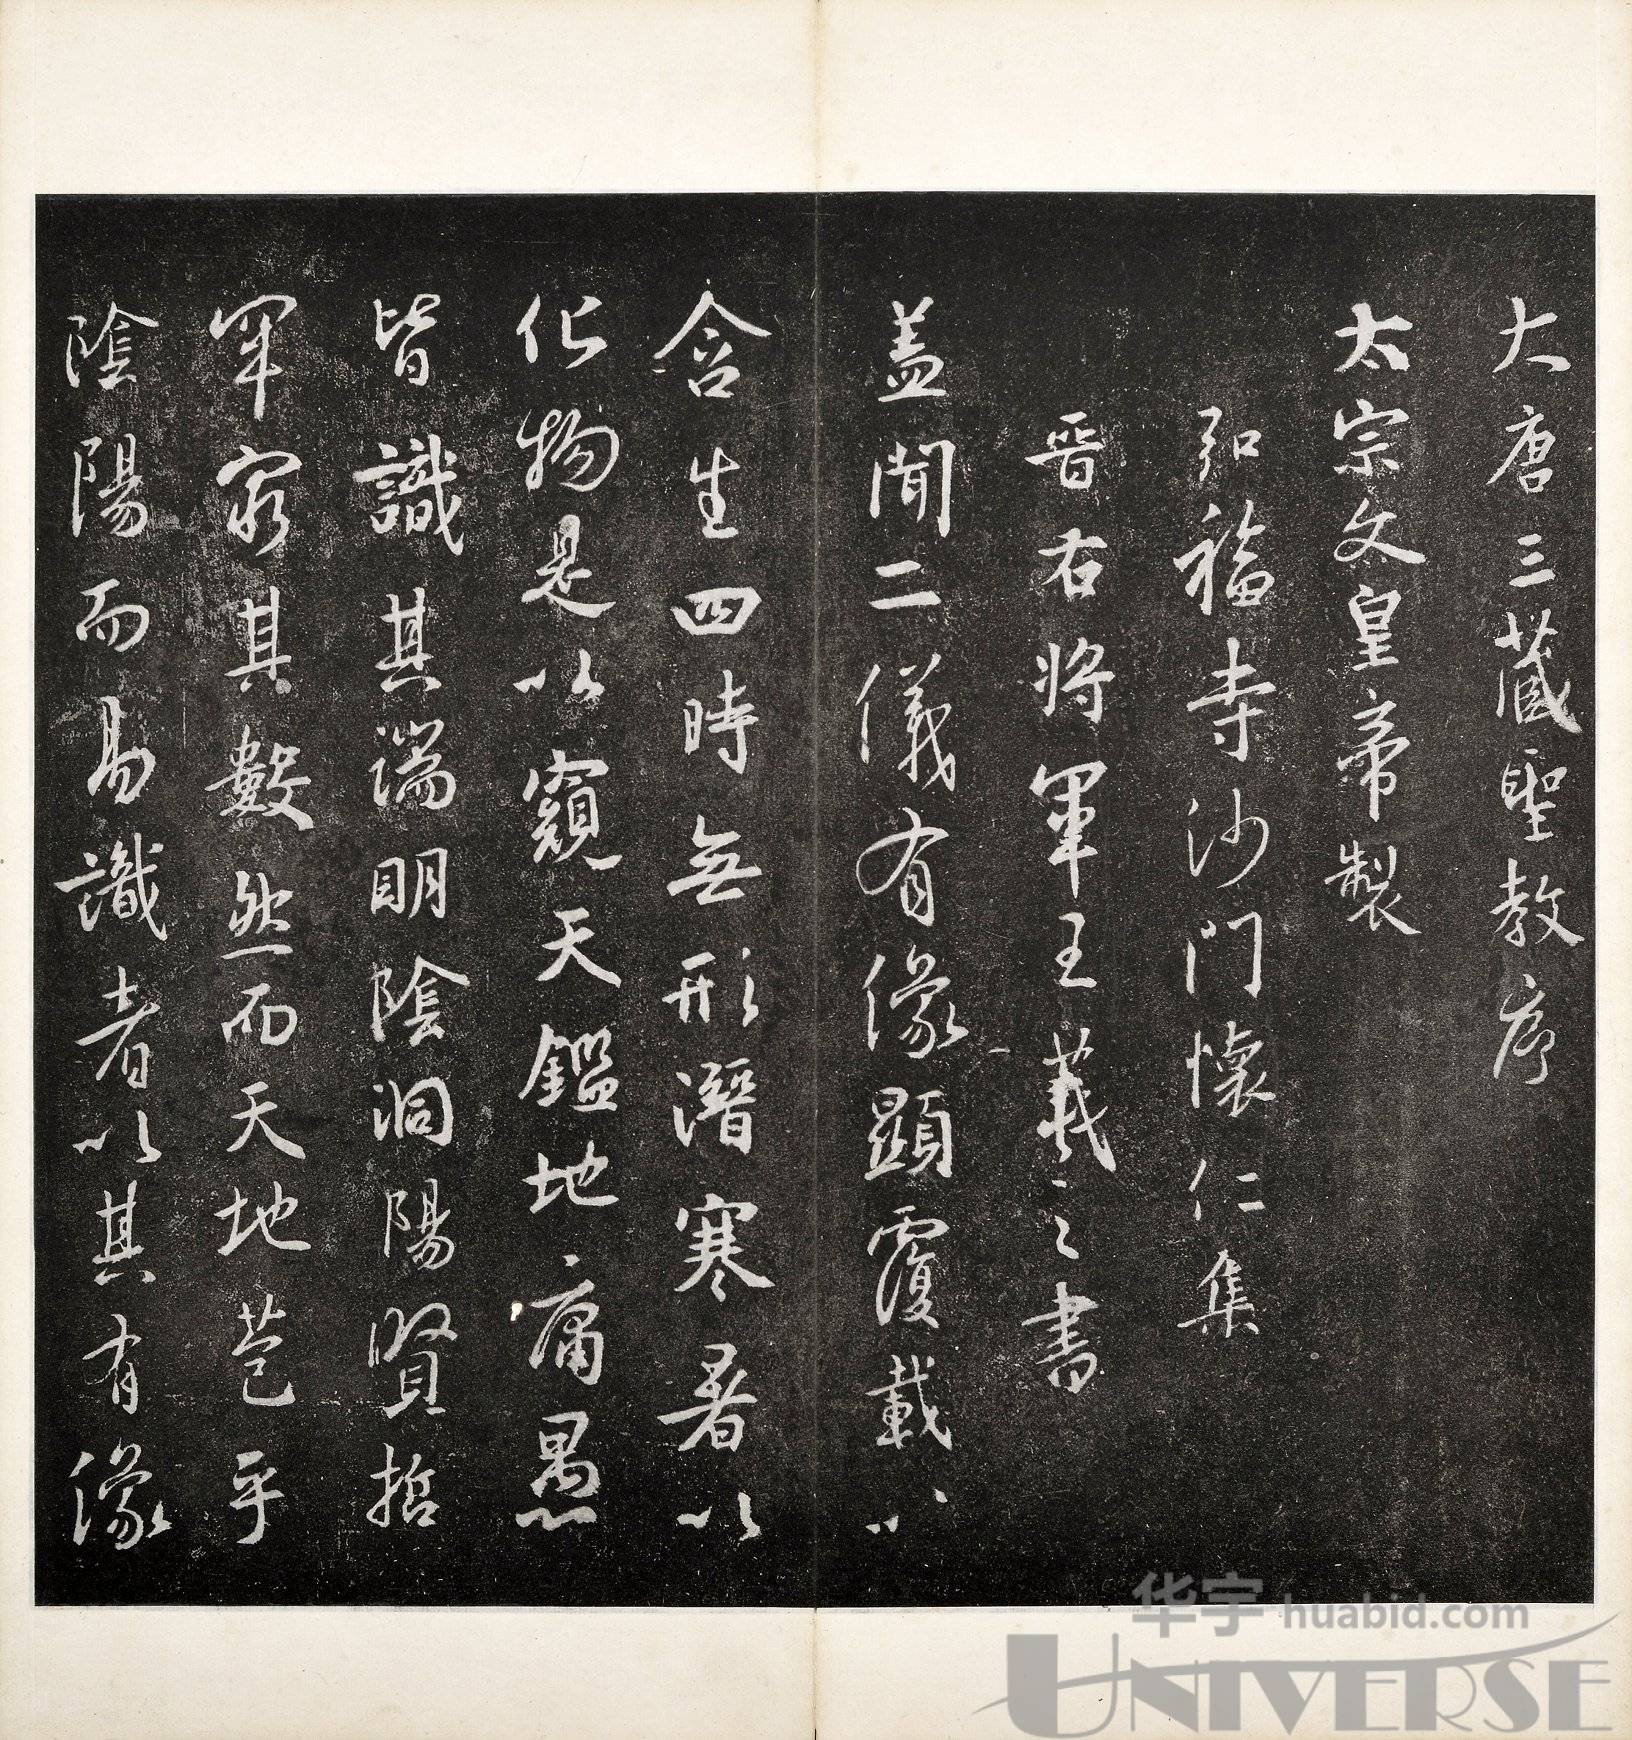 大唐三藏聖教序
太宗文皇帝製
弘福寺沙門懷仁集
晉右將軍王羲之書
蓋聞二儀有像顯覆載以
含生四時無形潛寒暑以
化物是以窺天鑑地庸愚
皆識其端明陰洞陽賢哲
罕窮其數然而天地苞乎
陰陽而易識者以其有像
华宇 huabid.com
UNIVERSE